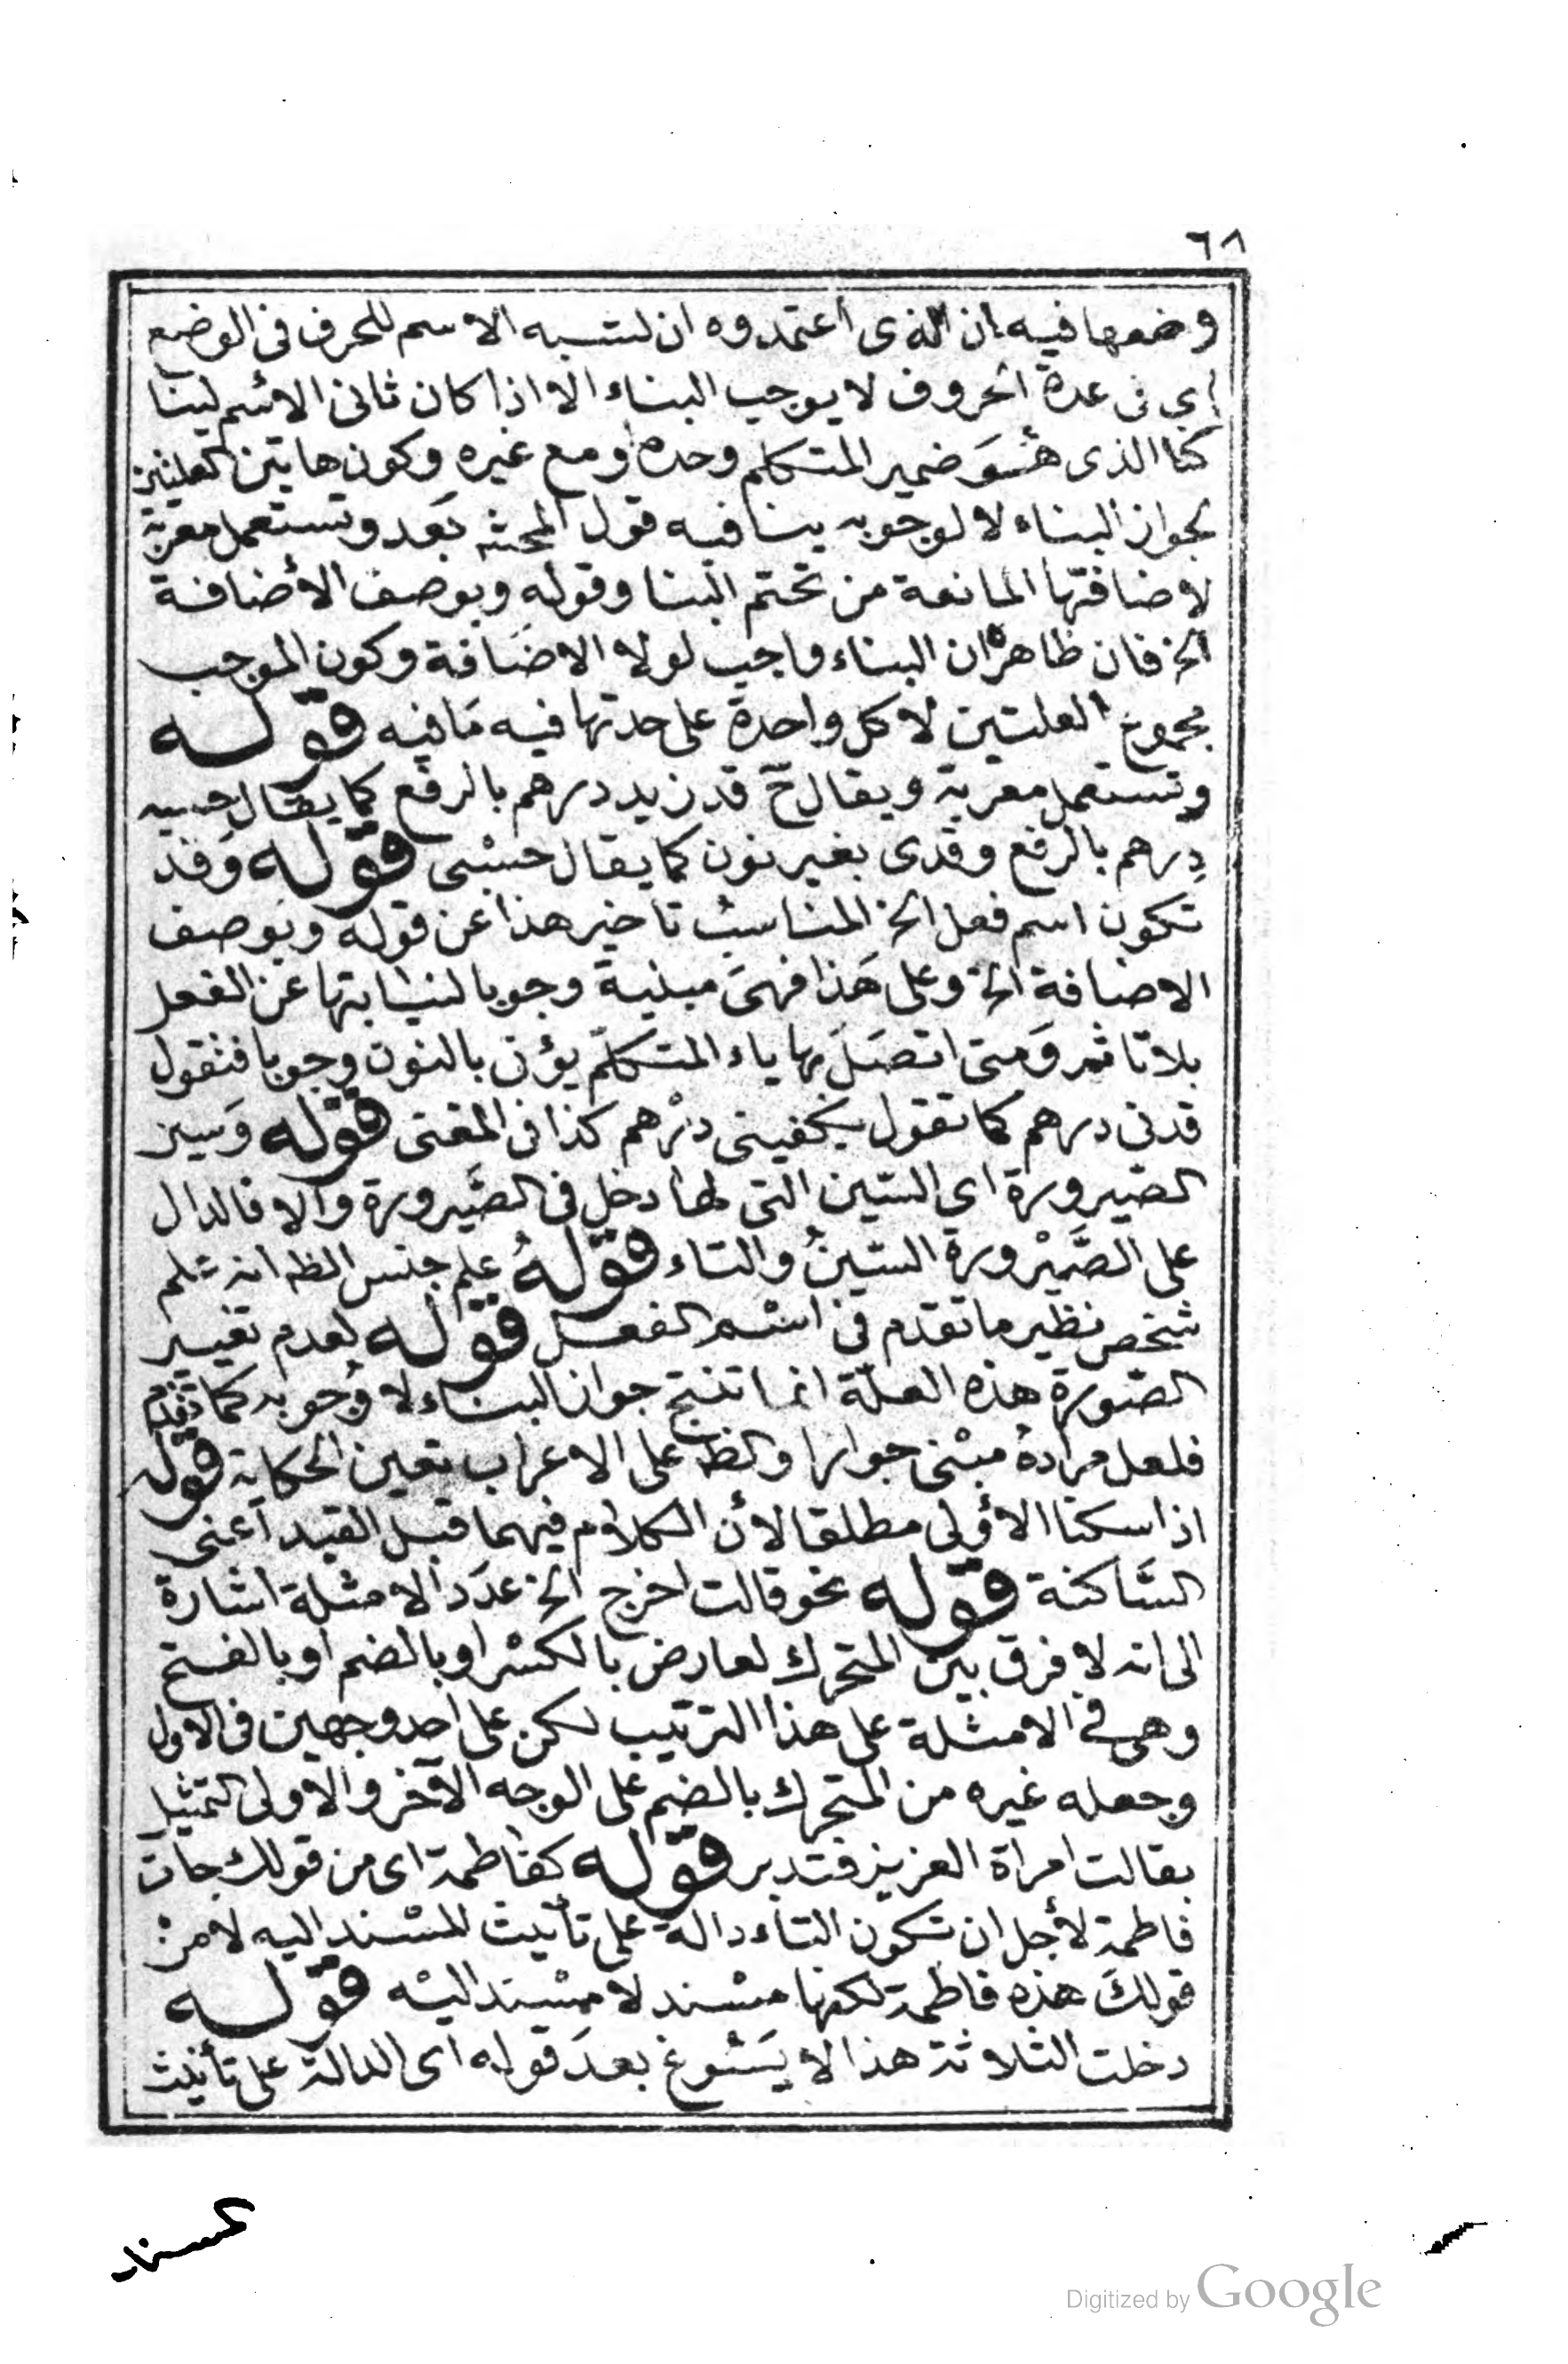 ٦٨
وضعها فيه ان الذى اعتمدوه ان لشبه الاسم للحرف فى الوضع
اى فى عدة الحروف لا يوجب البناء الا اذا كان ثانى الاسم لينا
كنا الذى هو ضمير المتكلم وحده او مع غيره وكون هاتين العلتين
لجواز البناء لا لوجوبه ينافيه قول المحشى بعد وتستعمل معربة
لاضافتها المانعة من تحتم البنا وقوله وبوصف الأضافة
الخ فان ظاهره ان البناء واجب لولا الاضافة وكون الموجب
مجموع العلتين لا كل واحدة على حدتها فيه مافيه قوله
وتستعمل معربة ويقال ح قد زيد درهم بالرفع كما يقال حسبه
درهم بالرفع وقدى بغير نون كما يقال حسبى قوله وقد
تكون اسم فعل الخ المناسب تاخير هذا عن قوله وبوصف
الاضافة الخ وعلى هذا فهى مبنية وجوبا لنيابتها عن الفعل
بلا تاثر ومتى اتصل بها ياء المتكلم يؤتى بالنون وجوبا فتقول
قدنى درهم كما تقول يكفينى درهم كذا فى المغنى قوله وسين
الصيرورة اى السين التى لها دخل فى الصيرورة والا فالدال
على الصيرورة السين والتاء قوله علم جنس الظ انه علم
شخص نظير ما تقدم فى اسم الفعل قوله لعدم تغيير
الصورة هذه العلة انما تنتج جواز البناء لا وجوبه كما تقدم
فلعل مراده مبنى جوازا والظ على الاعراب تعين الحكاية قوله
اذا سكنا الأولى مطلقا لأن الكلام فيهما قبل القيد أعنى
الساكنة قوله نحو قالت اخرج الخ عدد الامثلة اشارة
الى انه لا فرق بين المتحرك لعارض بالكسر او بالضم او بالفتح
وهى فى الامثلة على هذا الترتيب لكن على احد وجهين فى الاول
وجعله غيره من المتحرك بالضم على الوجه الآخر والاولى التمثيل
بقالت امراة العزيز فتدبر قوله كفاطمة اى من قولك جات
فاطمة لأجل ان تكون التاء دالة على تأنيث المسند اليه لا من
قولك هذه فاطمة لكونها مسند لا مسند اليه قوله
دخلت الثلاثة هذا لا يسوغ بعد قوله اى الدالة على تأنيث
المسند
Digitized by Google